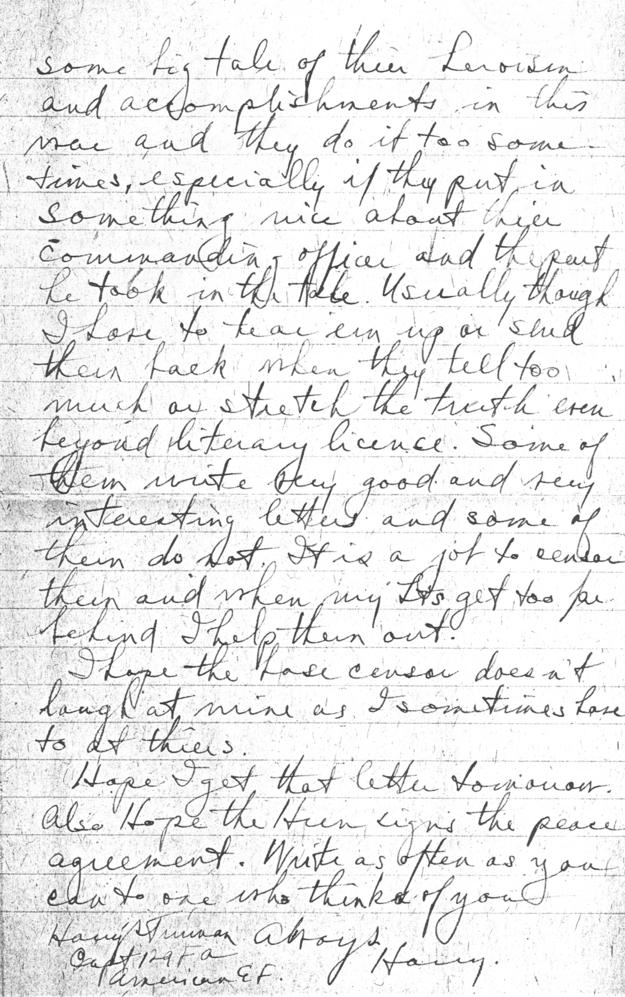 some big tale of thier heroism
and accomplishments in this
war and they do it too some-
times, especially if they put in
something nice about thier
commanding officer and the part
he took in the tale. Usually though
I have to tear em up or send
them back when they tell too
much or stretch the truth even
beyond literary licence. Some of
them write very good and very
interesting letters and some of
them do not. It is a job to censor
them and when my Lts get too far
behind I help them out.
I hope the base censor doesn't
laugh at mine as I sometimes have
to at thiers.
Hope I get that letter tomorrow.
Also Hope the Hun signs the peace
agreement. Write as often as you
can to one who thinks of you
Always
Harry.
Harry S Truman
Capt 129 F A
American E F.